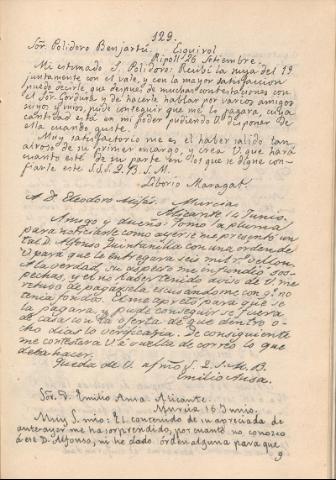 129.
Sor. Polidoro Benjartú. Esquirol
Ripoll 26 Setiembre.
Mi estimado S. Polidoro: Recibí la suya del 19
juntamente con el vale, y con la mayor satisfaccion
puedo decirle que despues de muchas contestaciones con
el Sor. Gordura y de hacerle hablar por varios amigos
suyos y mios, pude conseguir que me lo pagara, cuya
cantidad está en mi poder pudiendo V. disponer de
ella cuando guste.
Muy satisfactorio me es el haber salido tan
airoso de su primer encargo, y crea V. que hará
cuanto esté de su parte en los que se digne con-
fiarle este S.S.S. Q. B. S. M.
Liborio Maragat.
A D. Eleodoro Murcia
Alicante 14 Junio.
Amigo y dueño: Tomo la pluma
para noticiarle como ayer se me presentó un
tal D. Alfonso Quintanilla con una orden de
V. para que le entregara seis mil rs. de llon.
A la verdad, su aspecto me infundió sos-
pechas, y el no haber tenido aviso de V. me
retuvo de pagársela escusándome con q.e no
tenia fondos. El me apretó para que se
la pagara, y pude conseguir se fuera
de casa con la oferta de que dentro o-
cho dias lo verificaria. De consiguiente
me contestará V. á vuelta de correo lo que
deba hacer.
Queda de V. afmo. y S. Q. S. M. B.
Emilio Ansa.
Sor. D. Emilio Ansa Alicante.
Murcia 16 Junio.
Muy S. mio: El contenido de su apreciada de
anteayer me ha sorprendido, por cuanto no conozco
á ese D. Alfonso, ni he dado órden alguna para que
9